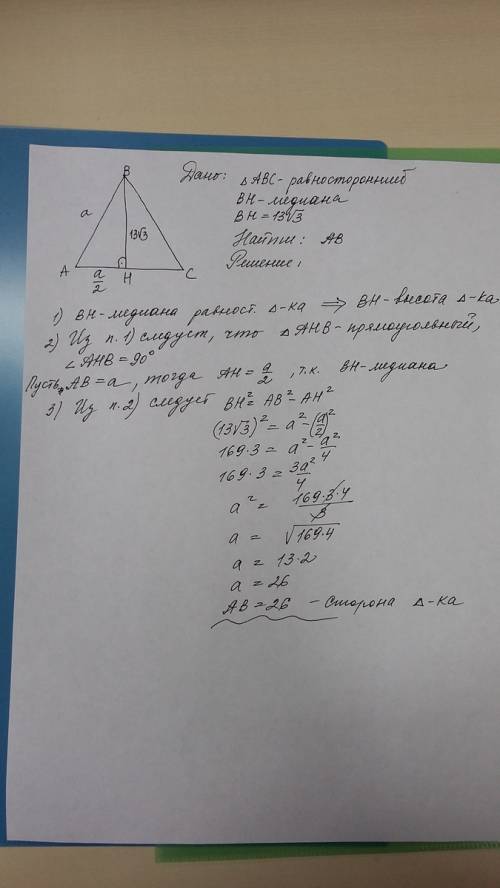 B
a
13√3
A
a/2
H
C
Дано: △ABC - равносторонний
BH - медиана
BH = 13√3
Найти: AB
Решение:
1) BH - медиана равност. △-ка ⟹ BH - высота △-ка
2) Из п. 1) следует, что △AHB - прямоугольный,
∠AHB = 90°
Пусть AB = a, тогда AH = a/2, т.к. BH - медиана
3) Из п. 2) следует BH² = AB² - AH²
(13√3)² = a² - (a/2)²
169·3 = a² - a²/4
169·3 = 3a²/4
a² = 169·3·4/3
a = √169·4
a = 13·2
a = 26
AB = 26 - сторона △-ка